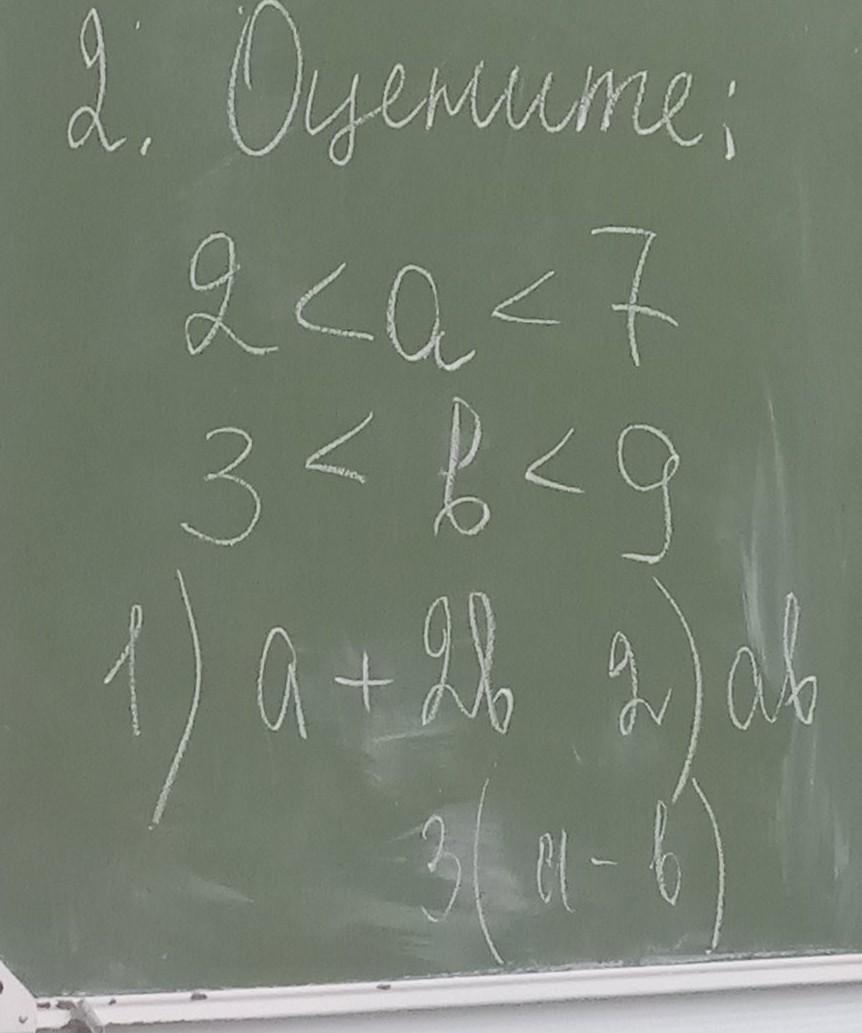 2. Оцените:
2 < a < 7
3 < b < 9
1) a + 2b 2) ab
3(a - b)